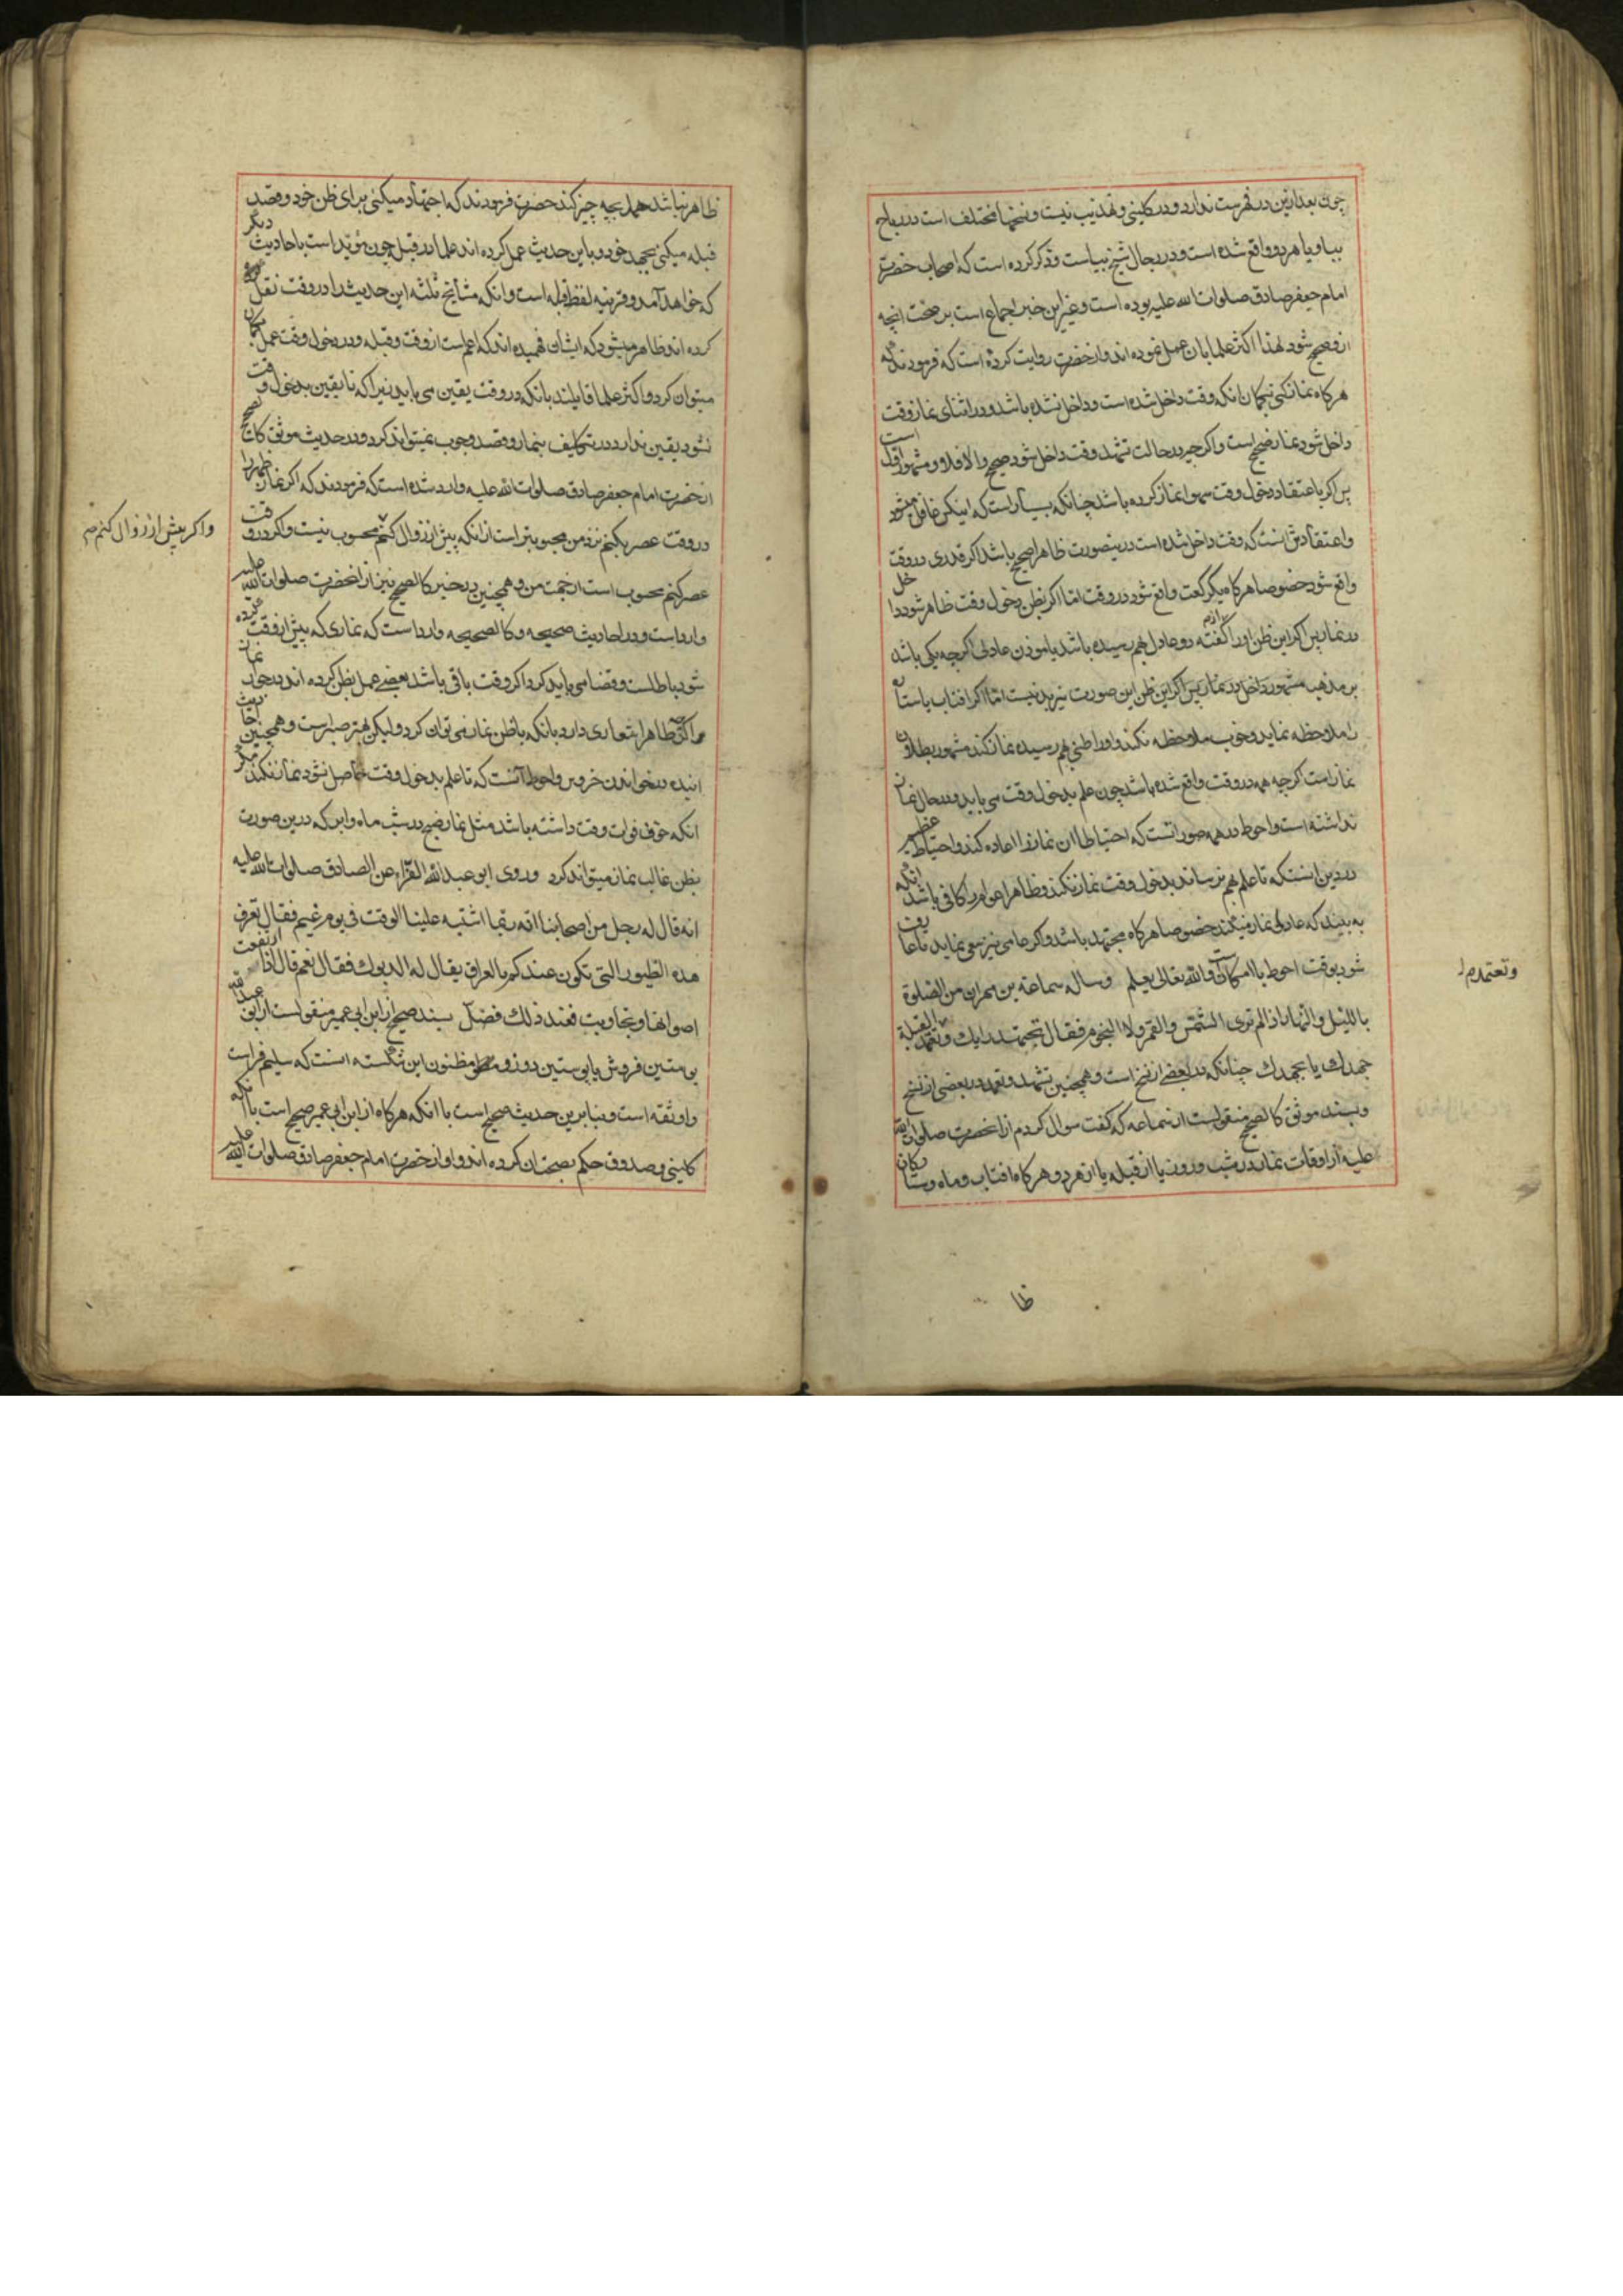 چون بعد ازین در فهرست ندارد و در کلینی و تهذیب نیست و نسخها مختلف است در رباح
ببا و یا هر دو واقع شده است و در رجال شیخ ببیاست و ذکر کرده است که از اصحاب حضرت
امام جعفر صادق صلوات الله علیه بوده است و غیر این خبر اجماع است بر صحت انچه
ازو صحیح شود لهذا اکثر علما بان عمل نموده اند و از حضرت روایت کرده است که فرمودند که
هر کاه نماز کنی بکمان انکه وقت داخل شده است و داخل نشده باشد و در اثنای نماز وقت
داخل شود نماز صحیح است و اکر چه در حالت تشهد وقت داخل شود صحیح و الا فلا و مشهور
پس اکر باعتقاد دخول وقت سهوا نماز کرده باشد چنانکه بسیار است که
و اعتقادش انست که وقت داخل شده است درینصورت ظاهرا صحیح باشد اکر قدری در وقت
واقع شود خصوصا هر کاه یکرکعت واقع شود در وقت اما اکر بظن دخول وقت ظاهر شود داخل
در نماز پس اکر این ظن او را از کفته دو عادل بهم رسیده باشد یا موذن عادلی اکر چه یکی باشد
بر مذهب مشهور داخل در نماز پس اکر این ظن این صورت نیز بد نیست اما اکر افتاب یا ستاره
را ملاحظه نماید و خوب ملاحظه نکند و او را ظنی بهم رسیده نماز کند مشهور بطلان
نماز است اکر چه همه در وقت واقع شده باشد چون علم بدخول وقت می باید و در حال نماز
نداشته است و احوط در همه صور انست که احتیاطا ان نماز را اعاده کند و احتیاط عظیم
درین انستکه تا علم بهم نرساند بدخول وقت نماز نکند و ظاهرا عوام را کافی باشد انکه
به بیند که عادلی نماز میکند خصوصا هر کاه مجتهد باشد و اکر عامی نیز سعی نماید تا عارف
شود بوقت احوط با امکان و الله تعالی یعلم و ساله سماعة بن مهران من الصلوة
باللیل و النهار اذا لم تری الشمس و القمر و لا النجوم فقال تجتهد رایک و تعمد القبلة
جهدک یا بجهدک چنانکه در بعضی از نسخ است و همچنین تشهد و تعمد در بعضی از نسخ
و بسند موثق کالصحیح منقولست از سماعه که کفت سوال کردم از انحضرت صلوات الله
علیه از اوقات نماز در شب و روز یا از قبله یا از هر دو هر کاه افتاب و ماه و ستارکان
و تعتمد م ل
ظا
ظاهر نباشد همه بچه چیز کند حضرت فرمودند که اجتهاد میکنی برای ظن خود و قصد
قبله میکنی بجهد خود و باین حدیث عمل کرده اند علما در قبله چون مؤید است باحادیث دیکر
که خواهد آمد و قرینه لفظ قبله است و انکه مشایخ ثلثه این حدیث را در وقت نقل
کرده اند ظاهر میشود که ایشان فهمیده اند که اعم است از وقت و قبله و در دخول وقت عمل بکمان
میتوان کرد و اکثر علما قایلند بانکه در وقت یقین می باید زیرا که تا یقین بدخول وقت
نشود یقین ندارد در تکلیف بنماز و قصد وجوب نمیتواند کرد و در حدیث موثق کالصحیح
از حضرت امام جعفر صادق صلوات الله علیه وارد شده است که فرمودند که اکر نماز ظهر را
در وقت عصر بکنم نزد من محبوبتر است از انکه پیش از زوال کنم محسوب نیست و اکر در وقت
و اکر پیش از زوال کنم صح
عصر کنم محسوب است از جهت من و همچنین در خبر کالصحیح نیز از انحضرت صلوات الله علیه
وارد است و در احادیث صحیحه و کالصحیحه وارد است که نمازی که پیش از وقت کرده
شود باطلست و قضا می باید کرد اکر وقت باقی باشد بعضی عمل بظن کرده اند در
ظاهرا شعاری دارد بانکه باظن نماز می توان کرد و لیکن بهتر صبر است و همچنین حدیث
اینده در خواندن خروس و احوط آنست که تا علم بدخول وقت حاصل نشود نماز نکند مکر
انکه خوف فوات وقت داشته باشد مثل نماز صبح در شب ماه و ابر که درین صورت
بظن غالب نماز میتواند کرد و روی ابو عبد الله الفراء عن الصادق صلوات الله علیه
انه قال له رجل من اصحابنا انه ربما اشتبه علینا الوقت فی یوم غیم فقال تعرف
هذه الطیور التی تکون عندکم بالعراق یقال له الدیوک فقال نعم قال اذا ارتفعت
اصواتها و تجاوبت فعند ذلک فصل بسند صحیح از ابن ابی عمیر منقولست از ابو عبد الله
پوستین فروش یا پوستین دوز و مظنون این شکسته انست که سلیم فراست
و او ثقه است و بنا برین حدیث صحیح است با انکه هر کاه از ابن ابی عمیر صحیح است با انکه
کلینی و صدوق حکم بصحتان کرده اند و او از حضرت امام جعفر صادق صلوات الله علیه